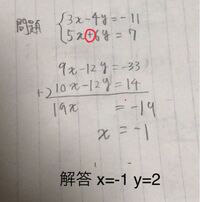 問題 { 3x-4y=-11
5x+6y=7
9x-12y=-33
+210x-12y=14
19x = -19
x = -1
解答 x=-1 y=2